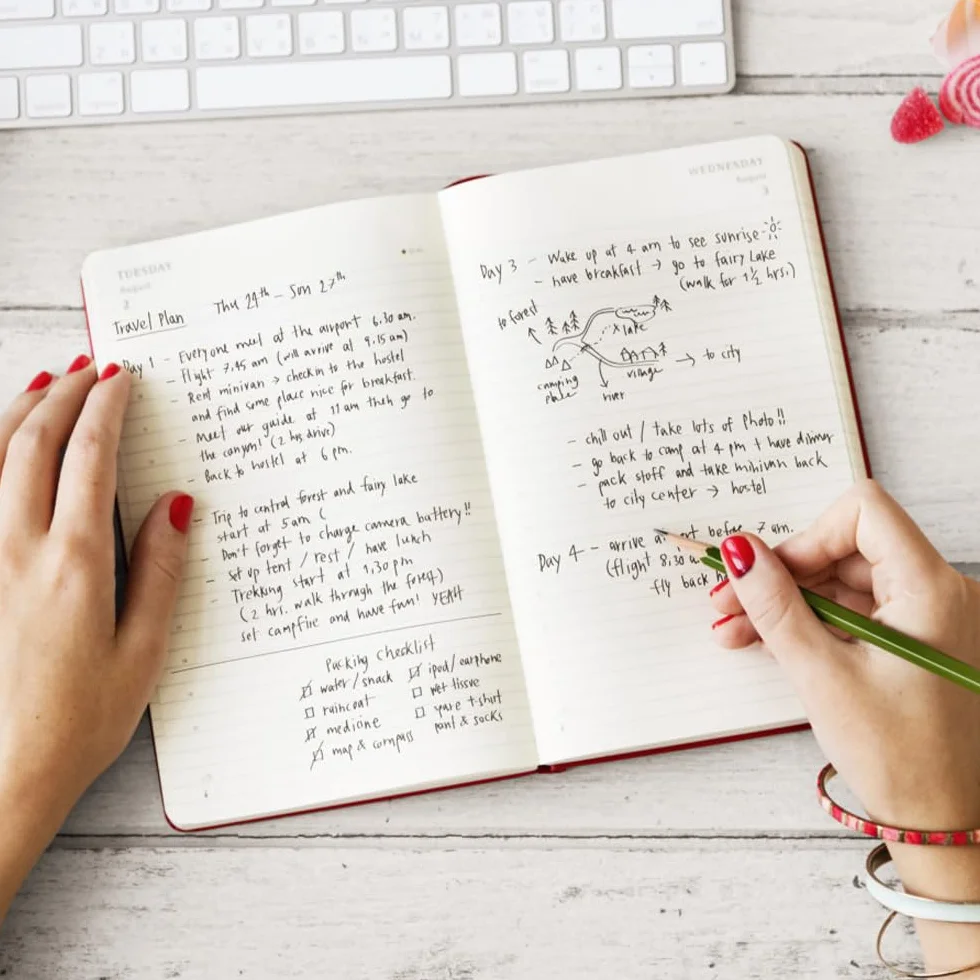 TUESDAY
August
2
Thu 24th – Sun 27th
Travel Plan
Day 1 - Everyone meet at the airport 6.30 am.
- Flight 7.45 am (will arrive at 9.15 am)
- Rent minivan → check in to the hostel
and find some place nice for breakfast.
- Meet our guide at 11 am then go to
the canyon! (2 hrs drive)
- Back to hostel at 6 pm.
- Trip to central forest and fairy lake
start at 5 am (
- Don't forget to charge camera battery!!
- set up tent / rest / have lunch
- Trekking start at 1.30 pm
(2 hrs. walk through the forest)
set campfire and have fun! YEAH
Packing Checklist
water/snack
raincoat
medicine
map & compass
ipod/earphone
wet tissue
spare t-shirt
pant & socks
WEDNESDAY
August
3
Day 3 - Wake up at 4 am to see sunrise
- have breakfast → go to fairy Lake
(walk for 1 1/2 hrs.)
to forest
lake
camping
place
village
→ to city
river
- chill out / take lots of photo!!
- go back to camp at 4 pm + have dinner
- pack stuff and take minivan back
to city center → hostel
Day 4 - arrive before 7 am.
(flight 8.30
fly back